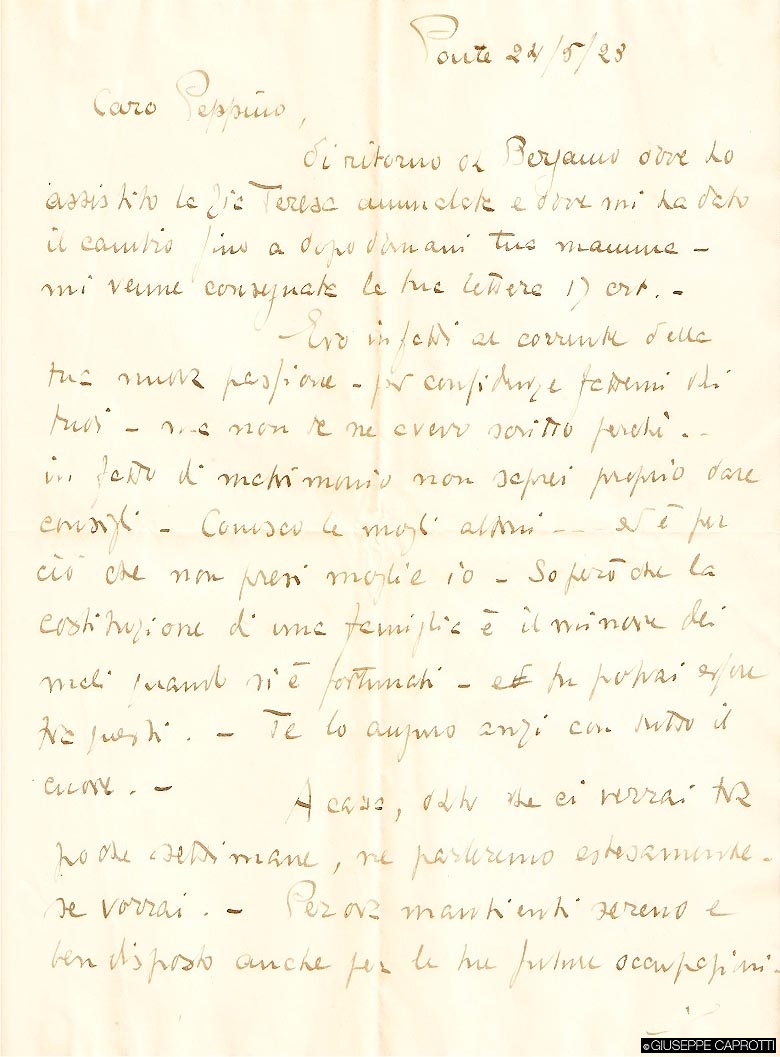 Ponte 24/5/23
Caro Peppino,
di ritorno da Bergamo dove ho
assistito la Zia Teresa ammalata e dove mi ha dato
il cambio fino a dopodomani tua mamma -
mi venne consegnata la tua lettera 17 crt. -
Ero infatti al corrente della
tua nuova passione - per confidenze fattemi dai
tuoi - ma non te ne avevo scritto perchè. -
in fatto di matrimonio non saprei proprio dare
consigli - Conosco le mogli altrui - ed è per
ciò che non presi moglie io - So però che la
costituzione di una famiglia è il minore dei
mali quando si è fortunati - e tu potrai essere
tra questi. - Te lo auguro anzi con tutto il
cuore. -
A casa, dato che ci verrai tra
poche settimane, ne parleremo estesamente -
se vorrai. - Per ora mantienti sereno e
ben disposto anche per le tue future occupazioni -
© GIUSEPPE CAPROTTI